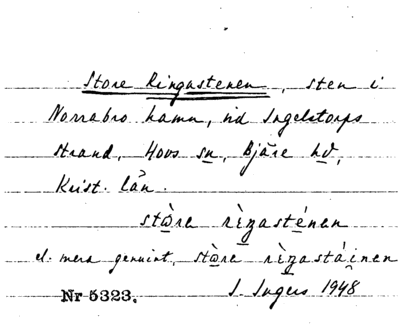 Store Ringastenen, sten i
Norrabro hamn, vid Ingelstorps
strand, Hovs sn, Bjäre hd,
Krist. län.
stὼra rὲŋasténan
el. mera genuint, stὼra rὲŋastáinan
Nr 5323. I. Ingers 1948